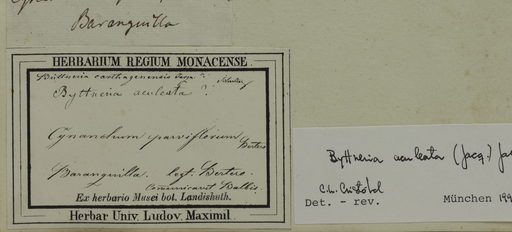 Baranquilla
HERBARIUM REGIUM MONACENSE
Büttneria carthagenensis Jacq. ?
Byttneria aculeata ?
Cynanchum parviflorum Bertero
Baranquilla. legt. Bertero.
Communicavit Balbis.
Ex herbario Musei bot. Landishuth.
Herbar Univ. Ludov. Maximil.
Byttneria aculeata (Jacq.) Jac
C.L. Cristóbal
Det. - rev. München 199